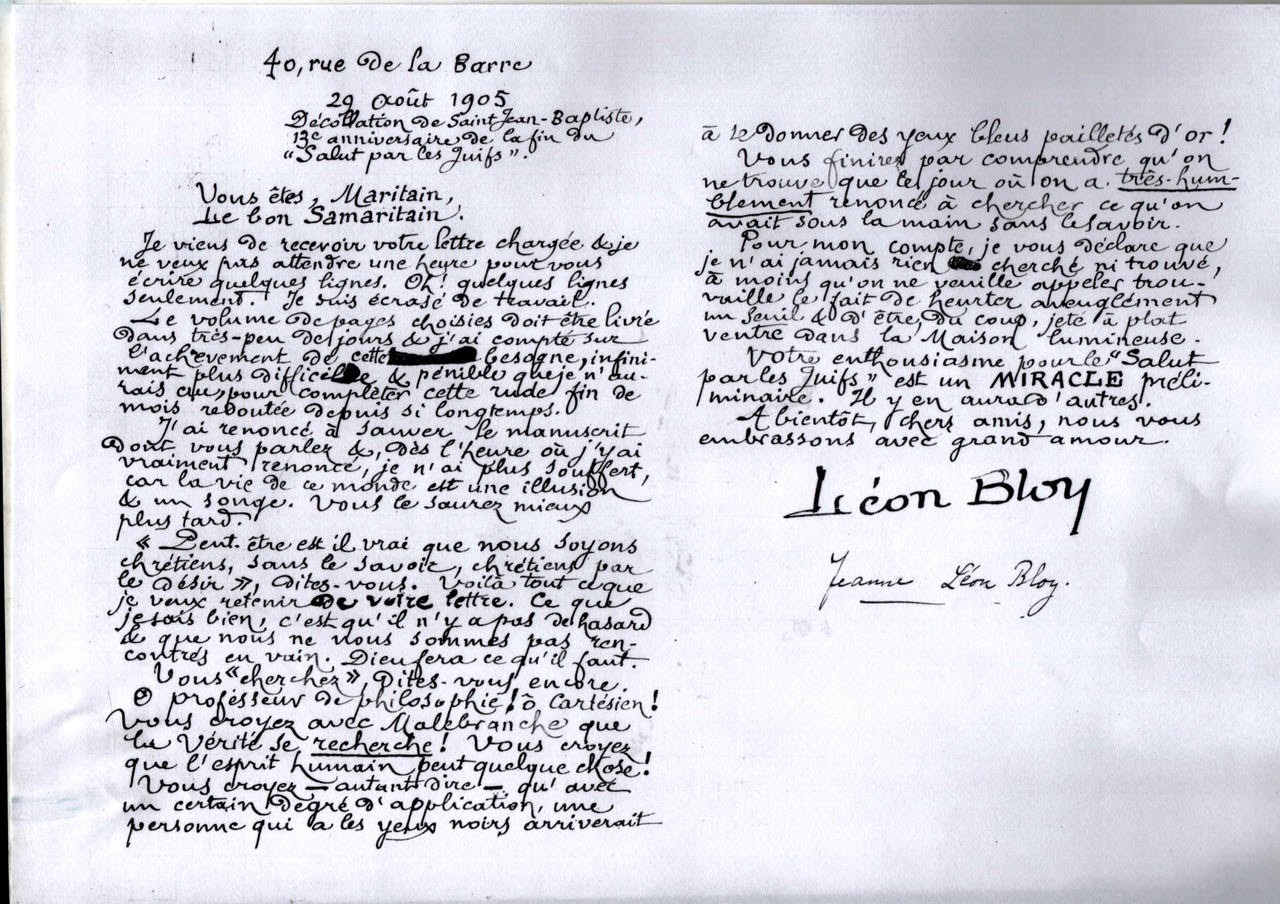 40, rue de la Barre
29 Août 1905
Décollation de Saint Jean-Baptiste,
13e anniversaire de la fin du
"Salut par les Juifs".
Vous êtes, Maritain,
Le bon Samaritain.
Je viens de recevoir votre lettre chargée & je
ne veux pas attendre une heure pour vous
écrire quelques lignes. Oh! quelques lignes
seulement. Je suis écrasé de travail.
Le volume de pages choisies doit être livré
dans très-peu de jours & j'ai compté sur
l'achèvement de cette besogne, infini-
ment plus difficile & pénible que je n'au-
rais cru, pour compléter cette rude fin de
mois redoutée depuis si longtemps.
J'ai renoncé à sauver le manuscrit
dont vous parlez &, dès l'heure où j'y ai
vraiment renoncé, je n'ai plus souffert,
car la vie de ce monde est une illusion
& un songe. Vous le saurez mieux
plus tard.
« Peut-être est il vrai que nous soyons
chrétiens, sans le savoir, chrétiens par
le désir », dites-vous. Voilà tout ce que
je veux retenir de votre lettre. Ce que
je sais bien, c'est qu'il n'y a pas de hasard
& que nous ne nous sommes pas ren-
contrés en vain. Dieu fera ce qu'il faut.
Vous «cherchez», dites-vous encore.
O professeur de philosophie! ô Cartésien!
Vous croyez avec Malebranche que
la Vérité se recherche! Vous croyez
que l'esprit humain peut quelque chose!
Vous croyez — autant dire — qu'avec
un certain degré d'application, une
personne qui a les yeux noirs arriverait
à se donner des yeux bleus pailletés d'or!
Vous finirez par comprendre qu'on
ne trouve que le jour où on a très-hum-
blement renoncé à chercher ce qu'on
avait sous la main sans le savoir.
Pour mon compte, je vous déclare que
je n'ai jamais rien cherché ni trouvé,
à moins qu'on ne veuille appeler trou-
vaille le fait de heurter aveuglément
un seuil & d'être, du coup, jeté à plat
ventre dans la Maison lumineuse.
Votre enthousiasme pour le "Salut
par les Juifs" est un MIRACLE préli-
minaire. Il y en aura d'autres.
A bientôt, chers amis, nous vous
embrassons avec grand amour.
Léon Bloy
Jeanne Léon Bloy.